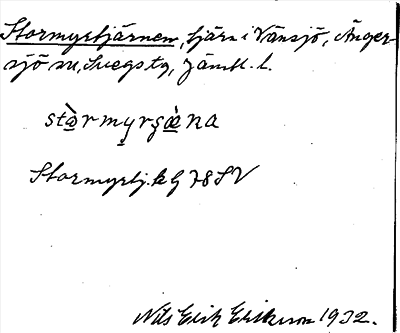 Stormyrtjärnen, tjärn i Vänsjö, Änger-
sjö sn, Svegs tg, Jämtl. l.
stɑ̀rmyrʂæ̀na
Stormyrtj. k G 78 SV
Nils Erik Eriksson 1932.